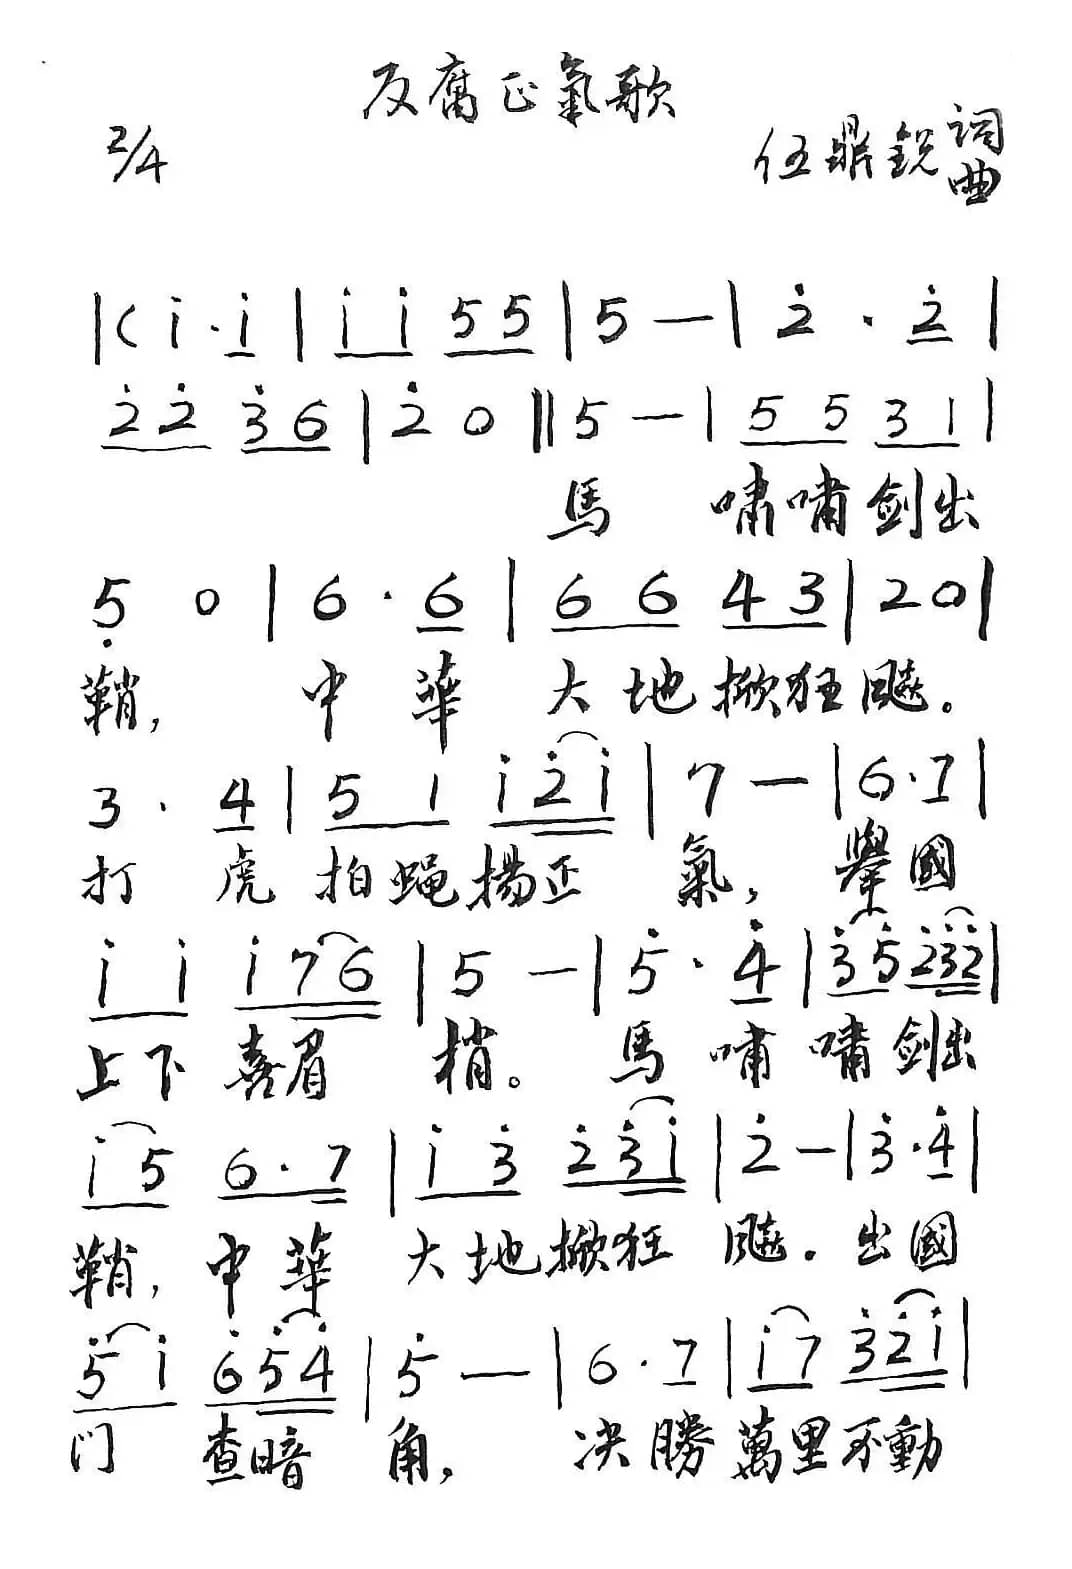 反腐正氣歌
2/4
伍鼎銳 詞曲
|( i̇ . i̇ | i̇ i̇ 5 5 | 5 — | 2̇ . 2̇ |
2̇ 2̇ 3̇ 6 | 2̇ 0 || 5 — | 5 5 3 1 |
馬 嘯嘯劍出
5̣ 0 | 6 . 6 | 6 6 4 3 | 2 0 |
鞘, 中華 大地掀狂飈。
3 . 4 | 5 1 i̇ 2̇ i̇ | 7 — | 6 . 7 |
打虎拍蝇揚正氣, 舉國
i̇ i̇ i̇ 7 6 | 5 — | 5̇ . 4̇ | 3̇ 5̇ 2̇ 3̇ 2̇ |
上下喜眉 梢。 馬嘯嘯劍出
i̇ 5 6 . 7 | i̇ 3̇ 2̇ 3̇ i̇ | 2̇ — | 3̇ . 4̇ |
鞘, 中華 大地掀狂 飈. 出國
5̇ i̇ 6̇ 5̇ 4̇ | 5̇ — | 6 . 7 | i̇ 7 3̇ 2̇ i̇ |
门 查暗 角, 决勝萬里不動